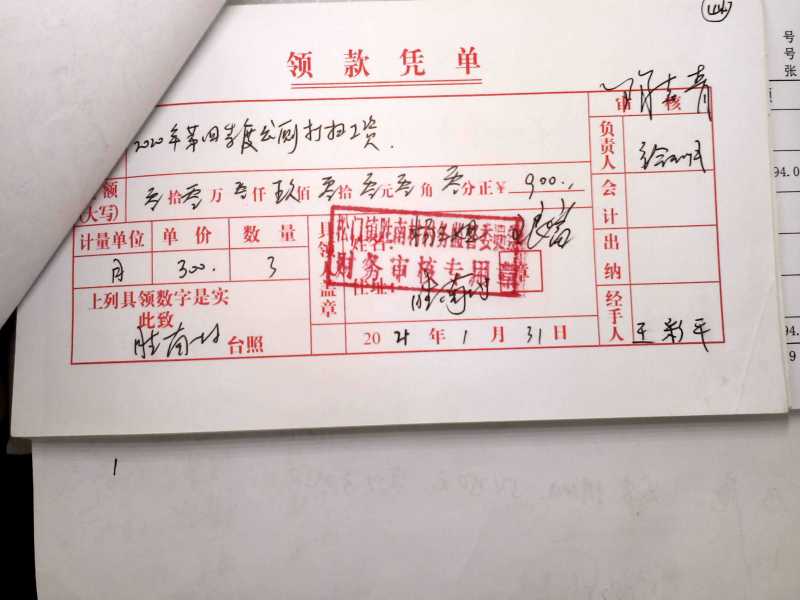 领款凭单
审核
2020年第四季度公厕打扫工资.
额
(大写)
零拾零万零仟玖佰零拾零元零角零分正￥900.
计量单位 单价 数量
月 300. 3
上列具领数字是实
此致
胜南村 台照
具领人盖章
姓名:
住址:
胜南村
松门镇胜南村村务监督委员会
财务审核专用章
2021年1月31日
负责人
会计
出纳
经手人
王彩平
号
号
张
94.0
94.
9